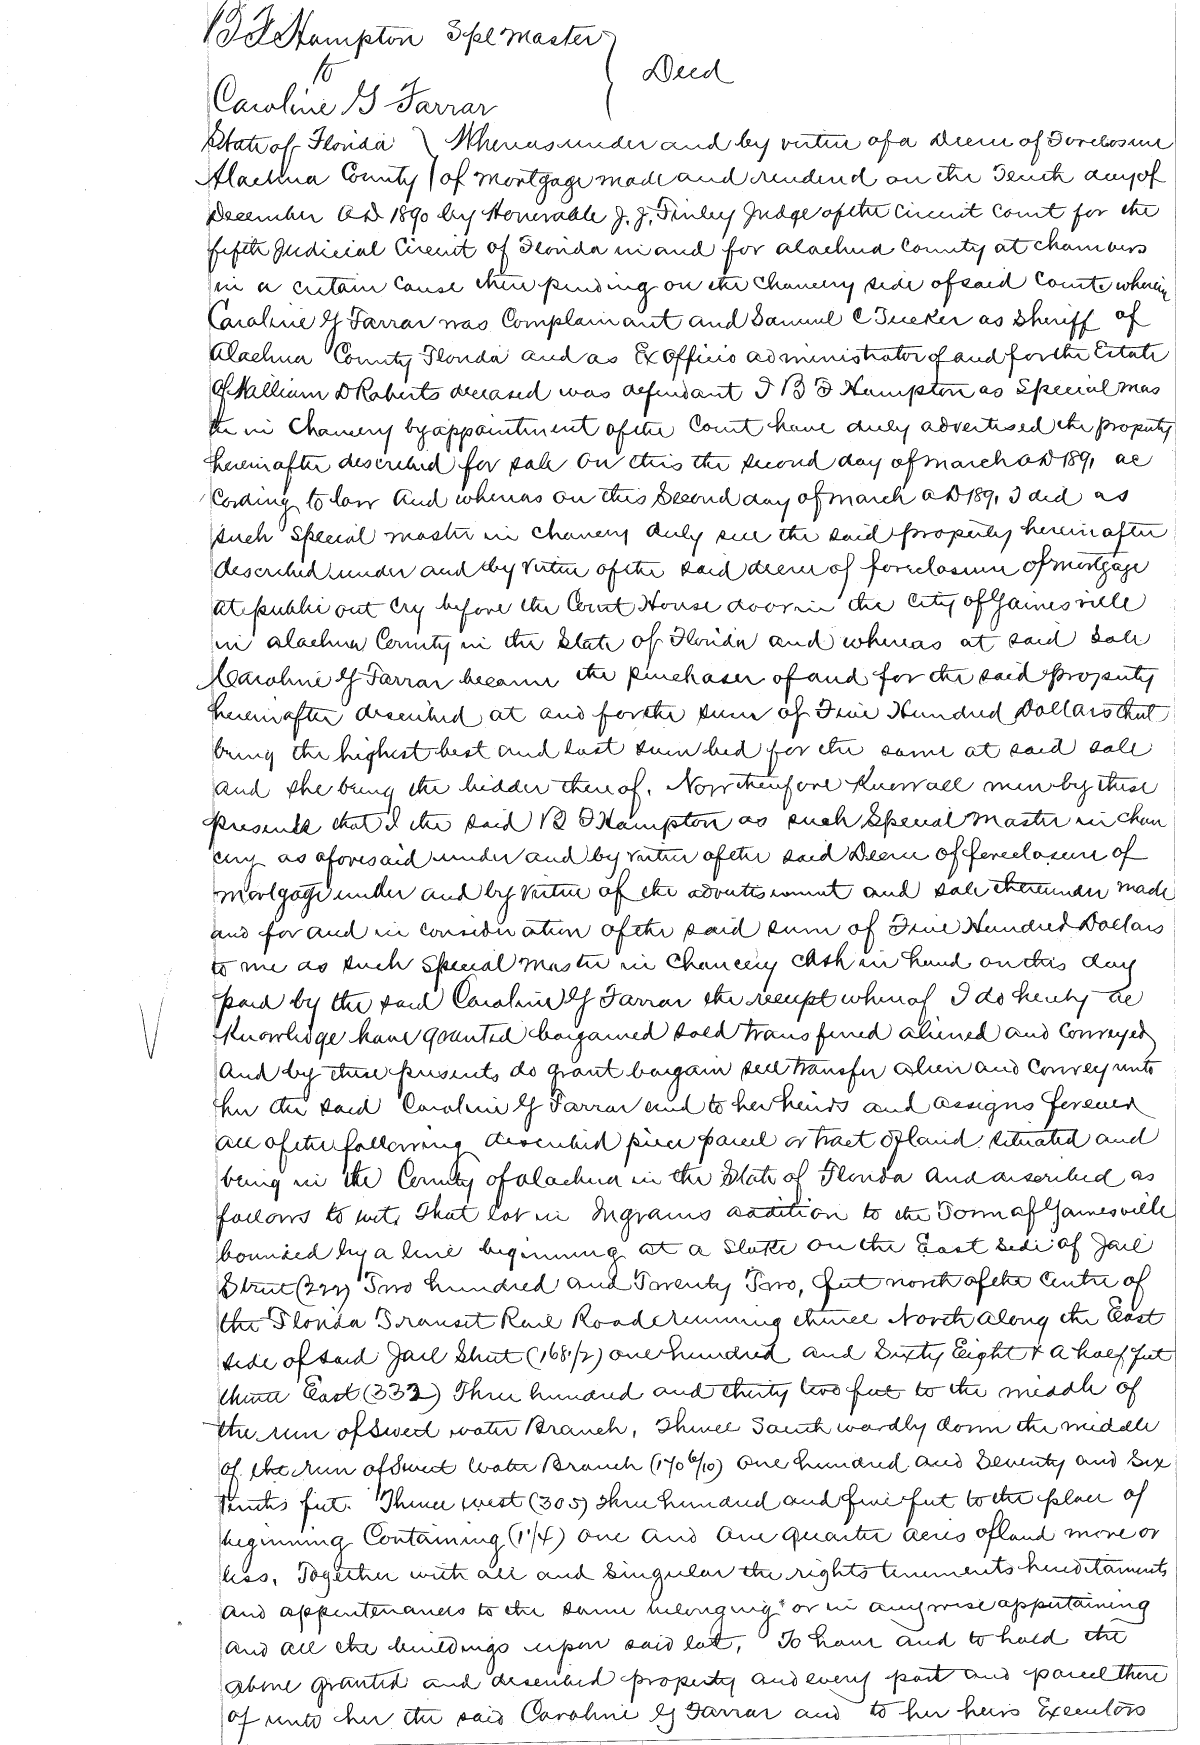 B F Hampton Spl Master
to
Deed
Caroline G Farrar
State of Florida Whereas under and by virtue of a Decree of Foreclosure
Alachua County of Mortgage made and rendered on the Tenth day of
December AD 1890 by Honorable J. J. Finley Judge of the Circuit Court for the
fifth Judicial Circuit of Florida in and for Alachua County at Chambers
in a certain Cause then pending on the Chancery side of said Court wherein
Caroline G Farrar was Complainant and Samuel C Tucker as Sheriff of
Alachua County Florida and as Ex Officio administrator of and for the Estate
of William D Roberts deceased was defendant I B F Hampton as Special Mas
ter in Chancery by appointment of the Court have duly advertised the property
hereinafter described for sale on this the second day of March AD 1891 ac
cording to law And whereas on this Second day of March AD 1891 I did as
such Special Master in Chancery duly sell the said property hereinafter
described under and by virtue of the said decree of foreclosure of mortgage
at public out cry before the Court House door in the City of Gainesville
in Alachua County in the State of Florida and whereas at said Sale
Caroline G Farrar became the purchaser of and for the said property
hereinafter described at and for the sum of Five Hundred Dollars that
being the highest best and last sum bid for the same at said sale
and she being the bidder thereof. Now therefore Know all men by these
presents that I the said B F Hampton as such Special Master in Chan
cery as aforesaid under and by virtue of the said Decree of foreclosure of
mortgage under and by virtue of the advertisement and sale thereunder made
and for and in consideration of the said sum of Five Hundred Dollars
to me as such Special Master in Chancery Cash in hand on this day
paid by the said Caroline G Farrar the receipt whereof I do hereby ac
knowledge have granted bargained sold transferred aliened and conveyed
and by these presents do grant bargain sell transfer alien and convey unto
her the said Caroline G Farrar and to her heirs and assigns forever
all of the following described piece parcel or tract of land situated and
being in the County of Alachua in the State of Florida and described as
follows to wit, That lot in Ingrams addition to the Town of Gainesville
bounded by a line beginning at a Stake on the East side of Jail
Street (222) Two hundred and Twenty Two, feet north of the Centre of
the Florida Transit Rail Road running thence North along the East
side of said Jail Street (168 1/2) one hundred and Sixty Eight & a half feet
thence East (332) Three hundred and thirty two feet to the middle of
the run of Sweet water Branch, Thence South wardly down the middle
of the run of Sweet Water Branch (170 6/10) one hundred and Seventy and Six
tenths feet. Thence west (305) three hundred and five feet to the place of
beginning Containing (1 1/4) one and one quarter acres of land more or
less, Together with all and singular the rights tenements hereditaments
and appertenances to the same belonging or in anywise appertaining
and all the buildings upon said lot, To have and to hold the
above granted and described property and every part and parcel there
of unto her the said Caroline G Farrar and to her heirs Executors